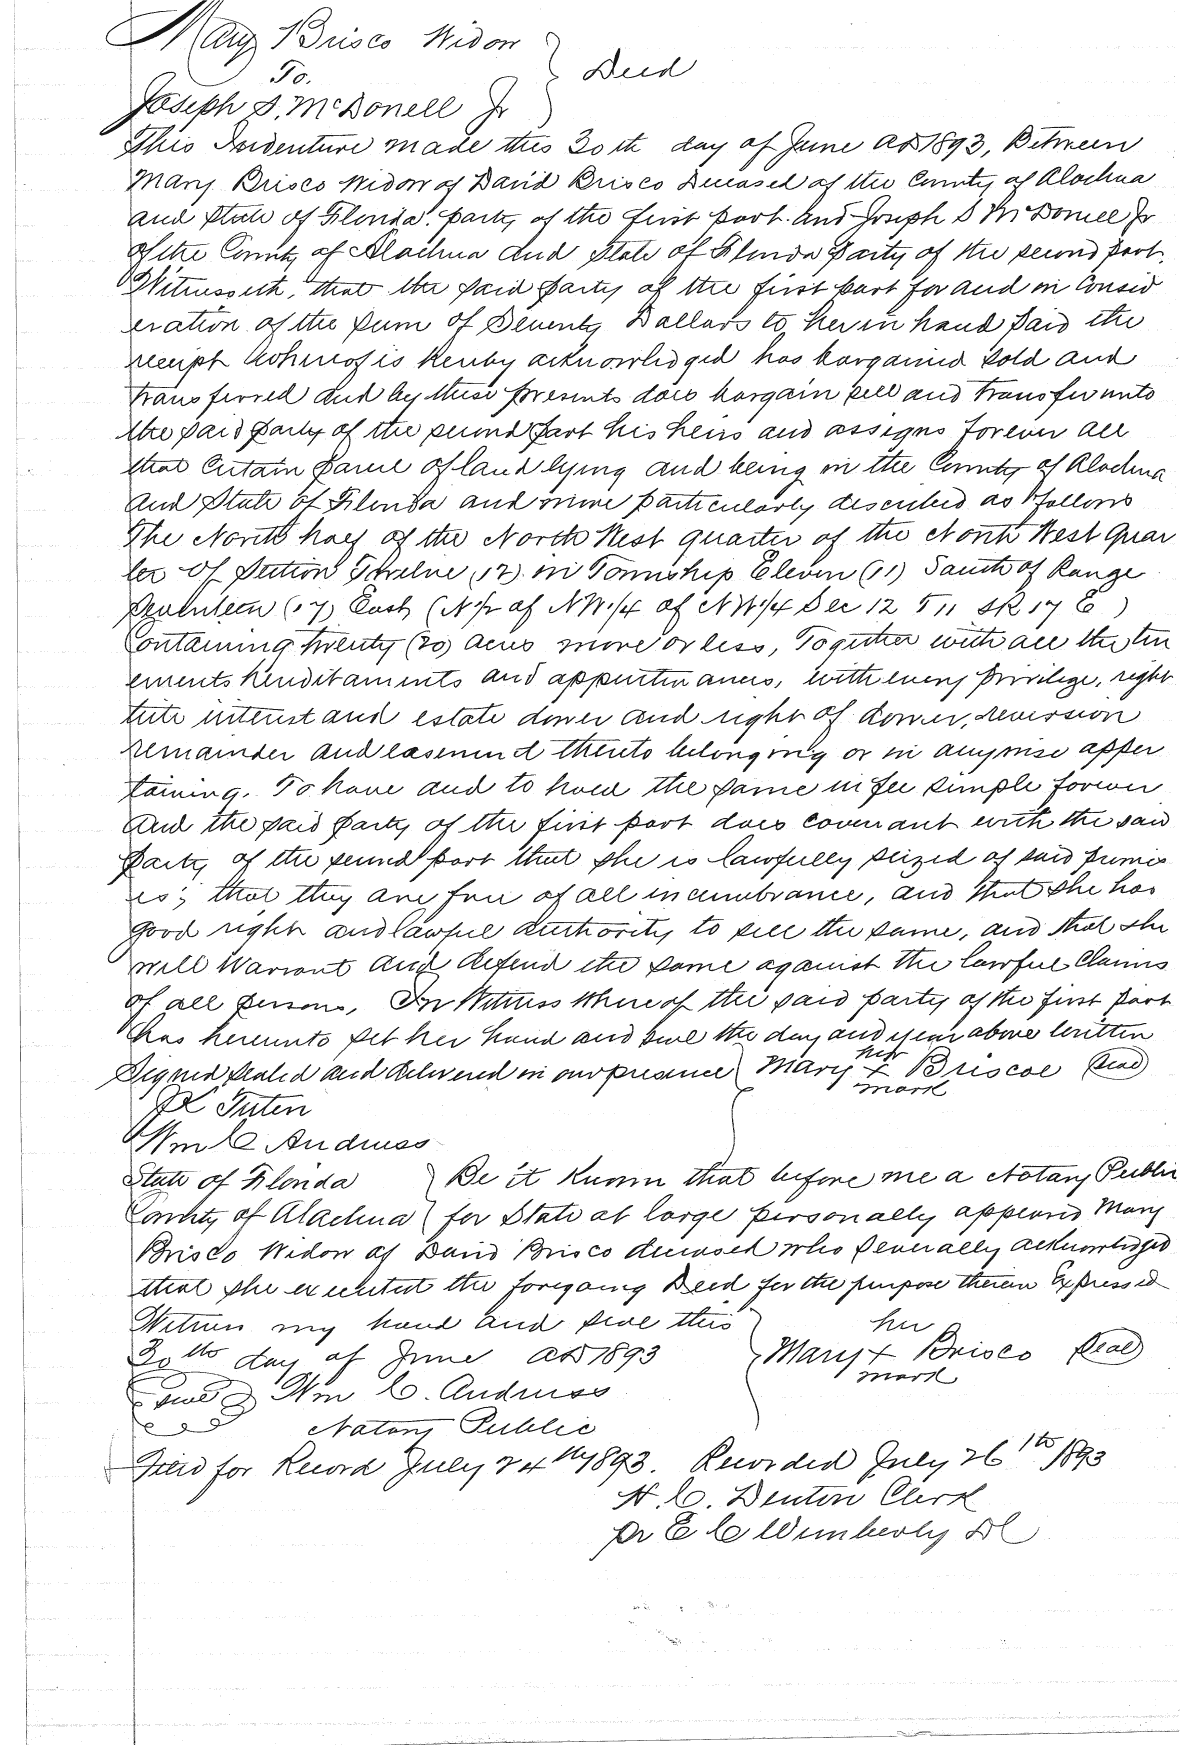 Mary Brisco Widow
To. } Deed
Joseph S. McDonell Jr
This Indenture made this 30th day of June AD 1893, Between
Mary Brisco Widow of David Brisco Deceased of the County of Alachua
and State of Florida. party of the first part. and Joseph S McDonell Jr
of the County of Alachua and State of Florida party of the second part.
Witnesseth, that the said party of the first part for and in Consid
eration of the sum of Seventy Dollars to her in hand paid the
receipt whereof is hereby acknowledged has bargained sold and
transferred and by these presents does bargain sell and transfer unto
the said party of the second part his heirs and assigns forever all
that Certain parcel of land lying and being in the County of Alachua
and State of Florida and more particularly described as follows
The North half of the North West quarter of the North West Quar
ter of Section Twelve (12) in Township Eleven (11) South of Range
Seventeen (17) East (N½ of NW¼ of NW¼ Sec 12 T 11 SR 17 E)
Containing twenty (20) acres more or less, Together with all the ten
ements hereditaments and appurtenances, with every privilege, right
title interest and estate dower and right of dower, reversion
remainder and easement thereto belonging or in anywise apper
taining. To have and to hold the same in fee simple forever
And the said party of the first part does covenant with the said
party of the second part that she is lawfully seized of said premis
es; that they are free of all incumbrance, and that she has
good right and lawful authority to sell the same, and that she
will Warrant and defend the same against the lawful Claims
of all persons, In Witness Whereof the said party of the first part
has hereunto set her hand and seal the day and year above written
Signed sealed and delivered in our presence } Mary her x mark Briscoe Seal
Tuten
Wm C Andruss
State of Florida } Be it Known that before me a Notary Public
County of Alachua } for State at large personally appeared Mary
Brisco Widow of David Brisco deceased who severally acknowledged
that she executed the foregoing Deed for the purpose therein Expressed
Witness my hand and seal this } her
30th day of June AD 1893 } Mary x Brisco Seal
Seal Wm C. Andruss mark
Notary Public
Filed for Record July 24th 1893. Recorded July 26th 1893
H. C. Denton Clerk
pr E C Wimberly DC